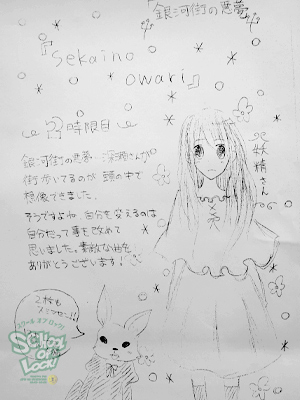 『銀河街の悪夢』
『Sekaino
owari』
2時限目
銀河街の悪夢 深瀬さんが
街歩いてるのが頭の中で
想像できました。
そうですよね 自分を変えるのは
自分だって事を改めて
思いました。素敵な曲を
ありがとうございます!
妖精さん
2枚も
スミマセン!!
スクール オブ ロック!
SCHOOL
OF
LOCK!